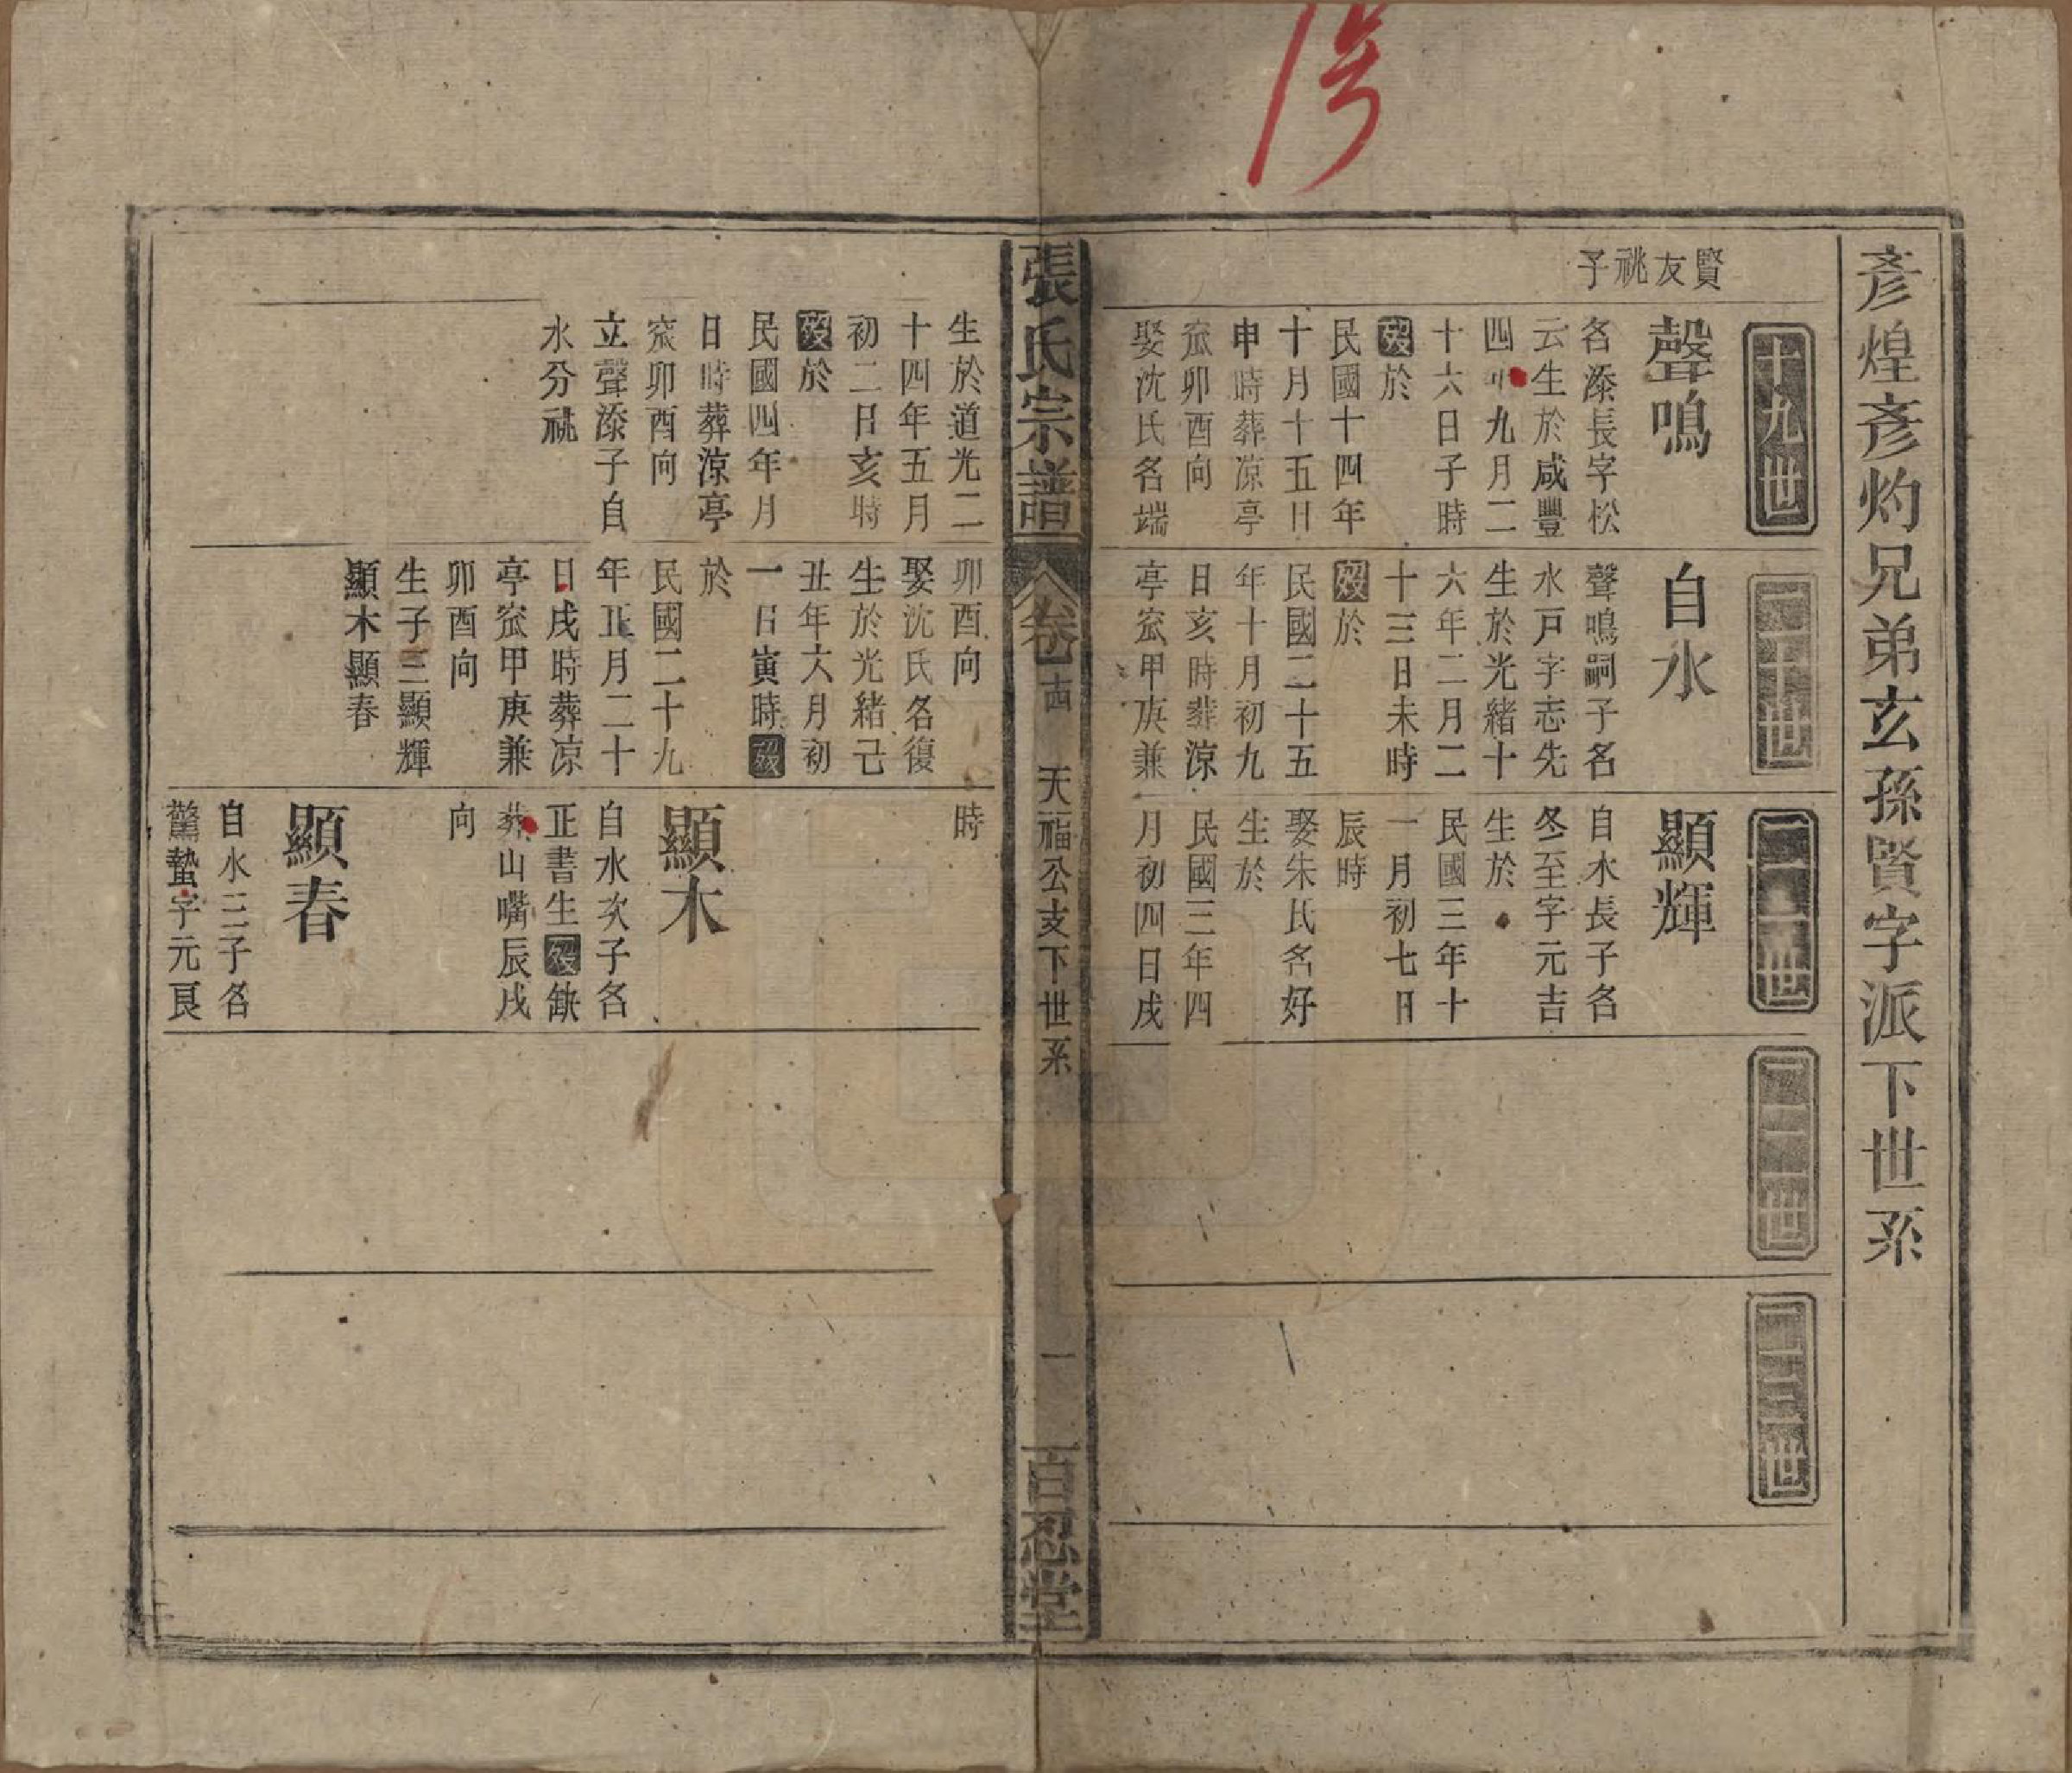 彥煌彥灼兄弟玄孫賢字派下世系
賢友祧子
十九世
聲鳴
名漆長字松
云生於咸豐
四年九月二
十六日子時
歿於
民國十四年
十月十五日
申時葬凉亭
窊卯酉向
娶沈氏名端
生於道光二
十四年五月
初二日亥時
歿於
民國四年月
日時葬涼亭
窊卯酉向
立聲漆子自
水分祧
二十世
自水
聲鳴嗣子名
水戸字志先
生於光緒十
六年二月二
十三日未時
歿於
民國二十五
年十月初九
日亥時葬涼
亭窊甲庚兼
卯酉向
娶沈氏名復
生於光緒己
丑年六月初
一日寅時歿
於
民國二十九
年正月二十
日戌時葬凉
亭窊甲庚兼
卯酉向
生子三顯輝
顯木顯春
二一世
顯輝
自水長子名
冬至字元吉
生於
民國三年十
一月初七日
辰時
娶朱氏名好
生於
民國三年四
月初四日戌
時
顯木
自水次子名
正書生歿缺
葬山嘴辰戌
向
顯春
自水三子名
驚蟄字元良
二二世
二三世
張氏宗譜
卷十四
天福公支下世系
一
百忍堂